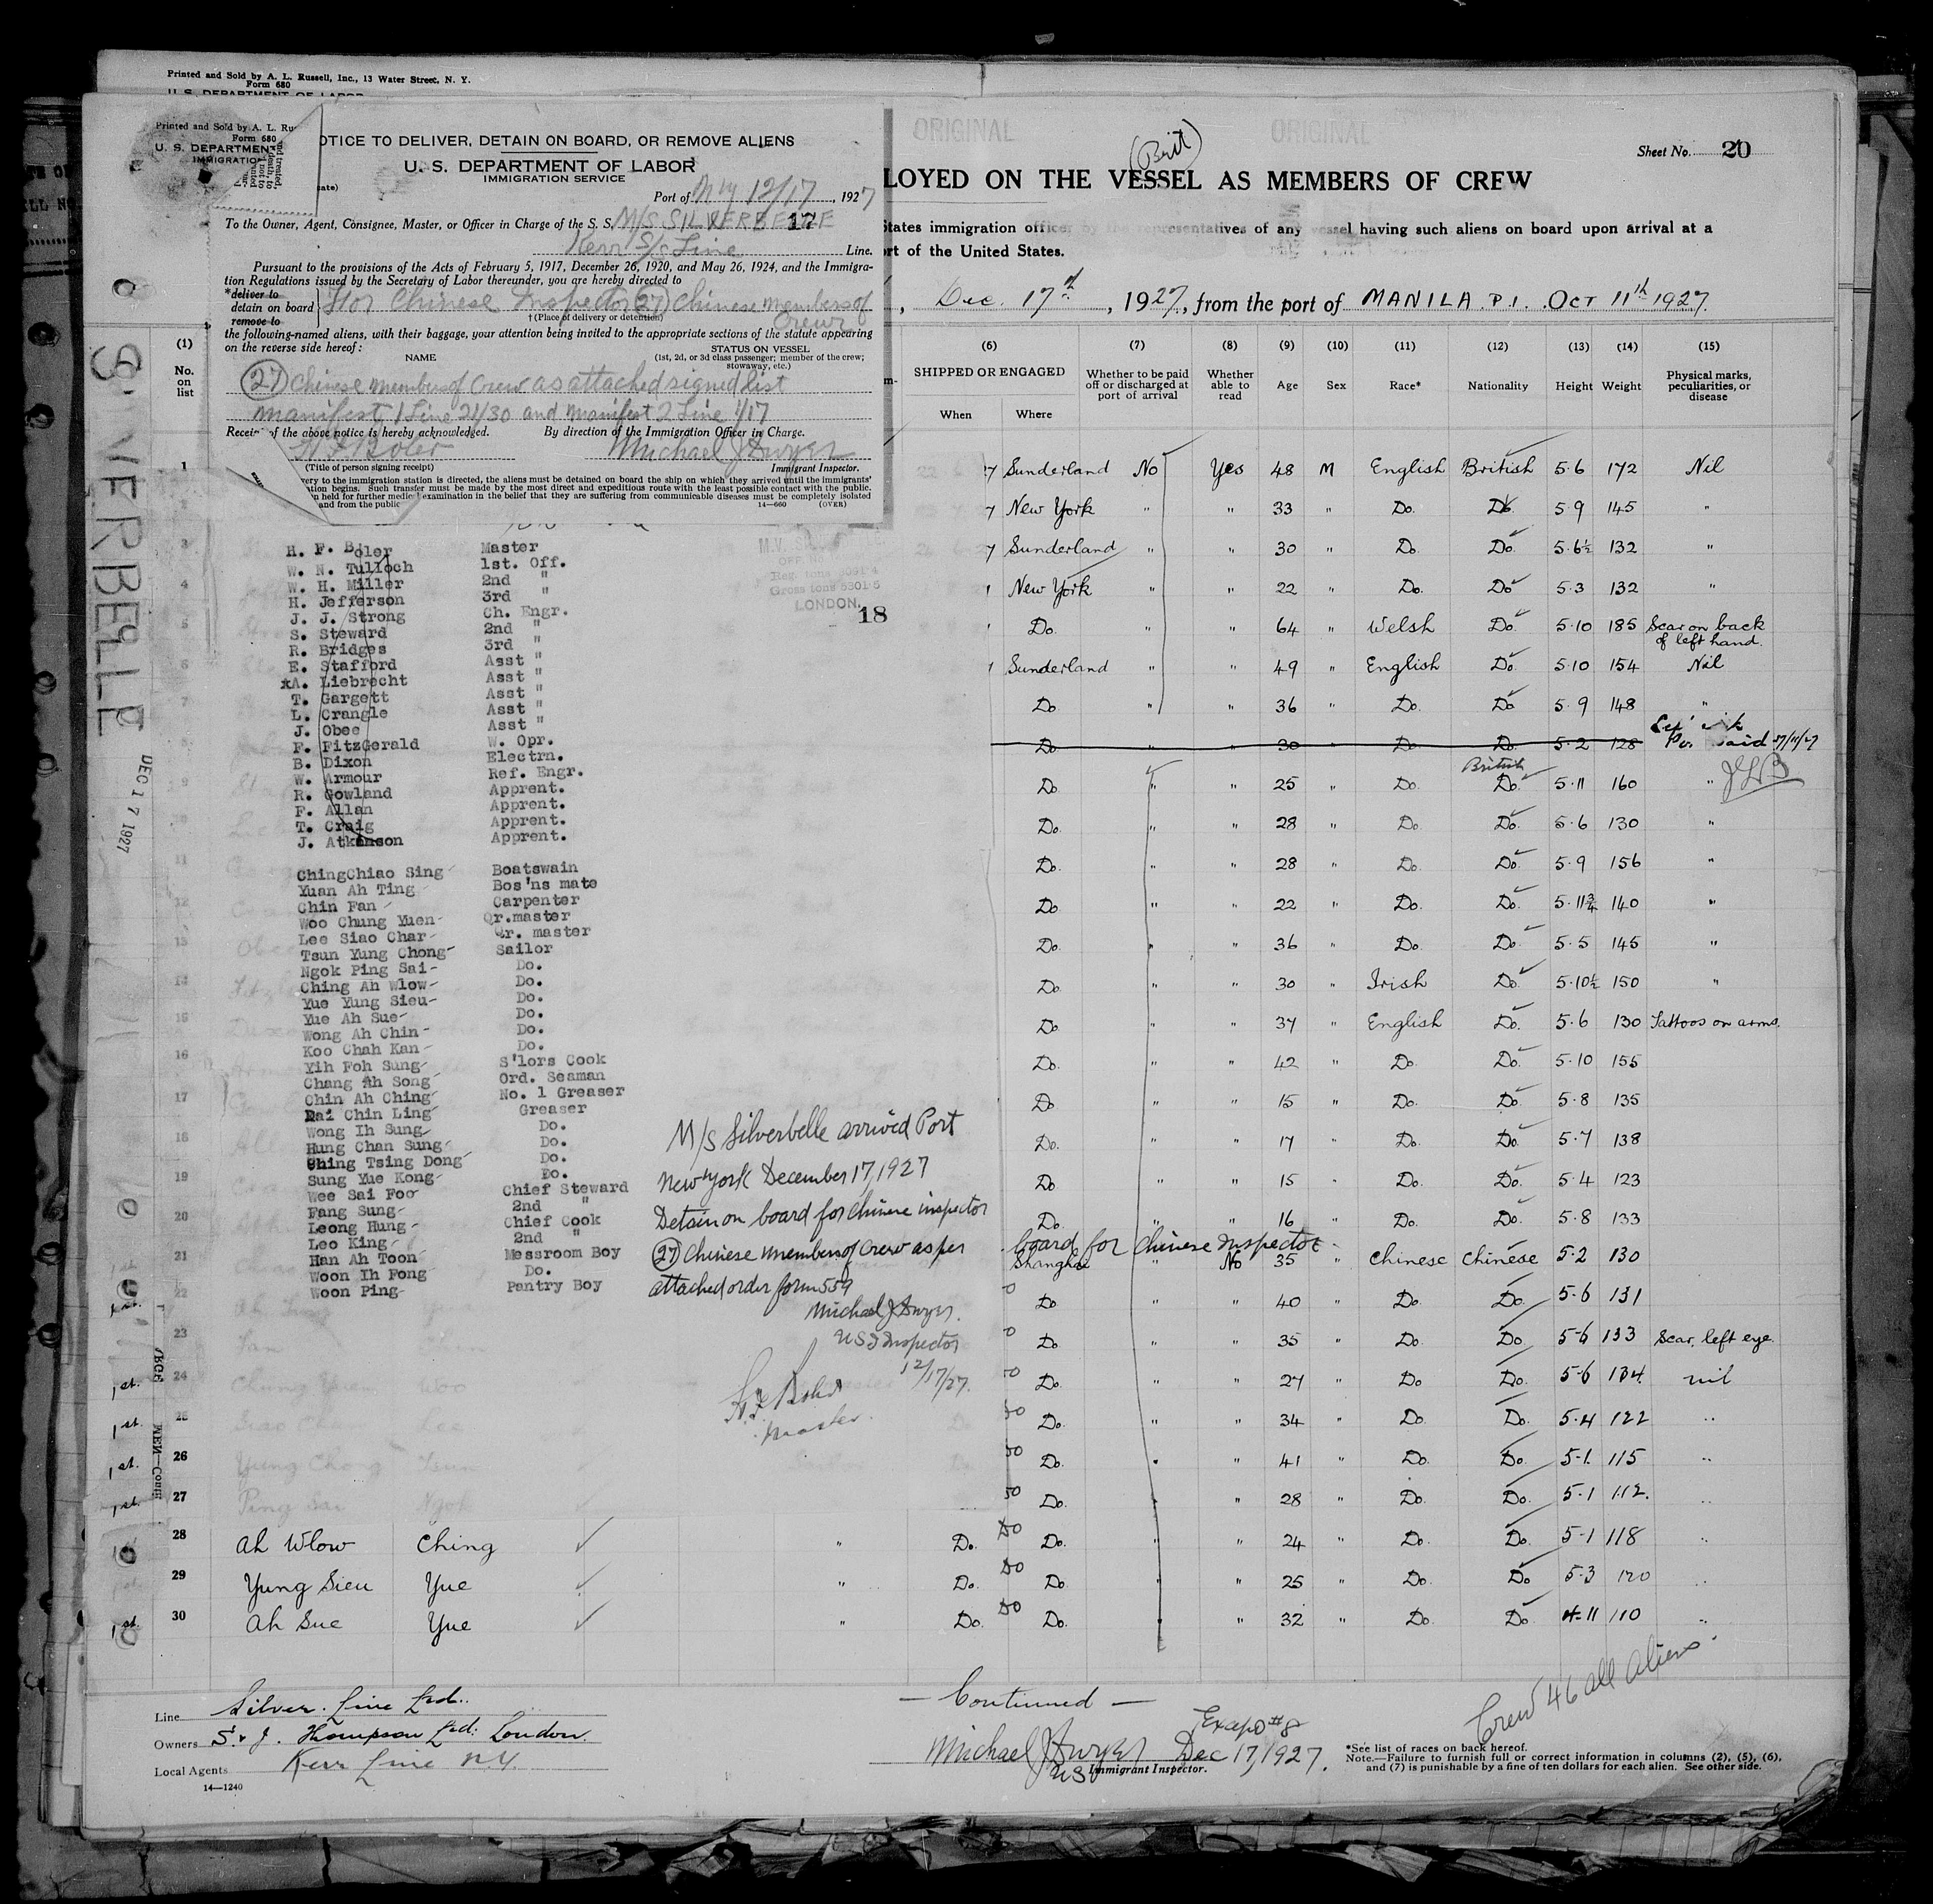 Printed and Sold by A. L. Russell, Inc., 13 Water Street, N. Y.
Form 680
U. S. DEPARTMENT OF LABOR
Printed and Sold by A. L. Ru
Form 680
U. S. DEPARTMENT
IMMIGRATIO
OTICE TO DELIVER, DETAIN ON BOARD, OR REMOVE ALIENS
U. S. DEPARTMENT OF LABOR
IMMIGRATION SERVICE
Port of N Y 12/17, 1927
To the Owner, Agent, Consignee, Master, or Officer in Charge of the S. S. M/S SILVERBELLE
17
Kerr S/S Line Line.
Pursuant to the provisions of the Acts of February 5, 1917, December 26, 1920, and May 26, 1924, and the Immigra-
tion Regulations issued by the Secretary of Labor thereunder, you are hereby directed to
*deliver to
detain on board
remove to
For Chinese Inspector (27) Chinese members of
Crew
† (Place of delivery or detention)
the following-named aliens, with their baggage, your attention being invited to the appropriate sections of the statute appearing
on the reverse side hereof:
NAME
STATUS ON VESSEL
(1st, 2d, or 3d class passenger; member of the crew;
stowaway, etc.)
(27) Chinese members of Crew as attached signed list
manifest 1 Line 21/30 and manifest 2 Line 1/17
Receipt of the above notice is hereby acknowledged. By direction of the Immigration Officer in Charge.
H F Boler Michael J Dwyer
(Title of person signing receipt) Immigrant Inspector.
ery to the immigration station is directed, the aliens must be detained on board the ship on which they arrived until the immigrants'
ation begins. Such transfer must be made by the most direct and expeditious route with the least possible contact with the public.
n held for further medical examination in the belief that they are suffering from communicable diseases must be completely isolated
and from the public
14—660 (OVER)
ORIGINAL ORIGINAL
(Brit)
Sheet No. 20
LOYED ON THE VESSEL AS MEMBERS OF CREW
States immigration officer by the representatives of any vessel having such aliens on board upon arrival at a
rt of the United States.
, Dec. 17th, 1927, from the port of MANILA. P.I. OCT 11th 1927.
(1) (6) (7) (8) (9) (10) (11) (12) (13) (14) (15)
No. on list SHIPPED OR ENGAGED When Where Whether to be paid off or discharged at port of arrival Whether able to read Age Sex Race* Nationality Height Weight Physical marks, peculiarities, or disease
1 Sunderland No Yes 48 M English British 5·6 172 Nil
New York " " 33 " Do. Do 5·9 145 "
3 Sunderland " " 30 " Do. Do. 5·6½ 132 "
4 New York " " 22 " Do. Do 5·3 132 "
5 Do. " " 64 " Welsh Do. 5·10 185 Scar on back of left hand.
6 Sunderland " " 49 " English Do. 5·10 154 Nil
7 Do " " 36 " Do. Do 5·9 148 "
Do " " 30 " Do Do. 5·2 128 Said 27/11/27
British
9 Do " " 25 " Do. Do. 5·11 160 "
Do. " " 28 " Do. Do. 5·6 130 "
11 Do. " " 28 " Do. Do. 5·9 156 "
12 Do " " 22 " Do. Do. 5·11¾ 140 "
13 Do. " " 36 " Do. Do 5·5 145 "
14 Do. " " 30 " Irish Do. 5·10½ 150 "
15 Do. " " 37 " English Do. 5·6 130 Tattoos on arms.
16 Do. " " 42 " Do. Do. 5·10 155
17 Do " " 15 " Do. Do. 5·8 135
18 Do. " " 17 " Do. Do. 5·7 138
19 Do " " 15 " Do. Do. 5·4 123
20 Do. " " 16 " Do. Do. 5·8 133
board for Chinese Inspector
21 Shanghai " No 35 " Chinese Chinese 5·2 130
22 Do " " 40 " Do. Do. 5·6 131
23 Do " " 35 " Do. Do 5-6 133 Scar, left eye.
24 Do. " " 27 " Do Do. 5-6 134 nil
25 Do. " " 34 " Do. Do. 5·4 122 "
26 Do. " " 41 " Do. Do. 5-1. 115 "
27 Do. " " 28 " Do. Do. 5-1 112. "
28 Ah Wlow Ching " Do. Do Do. " " 24 " Do. Do. 5-1 118 "
29 Yung Sieu Yue " Do. Do Do. " " 25 " Do. Do 5-3 120 "
30 Ah Sue Yue " Do. Do Do. " " 32 " Do. Do. 4-11 110 "
H. F. Boler Master
W. N. Tulloch 1st. Off.
W. H. Miller 2nd "
H. Jefferson 3rd "
J. J. Strong Ch. Engr.
S. Steward 2nd "
R. Bridges 3rd "
E. Stafford Asst "
xA. Liebrecht Asst "
T. Gargett Asst "
L. Crangle Asst "
J. Obee Asst "
F. FitzGerald W. Opr.
B. Dixon Electrn.
W. Armour Ref. Engr.
R. Gowland Apprent.
F. Allan Apprent.
T. Craig Apprent.
J. Atkinson Apprent.
LONDON.
18
ChingChiao Sing Boatswain
Yuan Ah Ting Bos'ns mate
Chin Fan Carpenter
Woo Chung Yuen Qr.master
Lee Siao Char Qr. master
Tsun Yung Chong Sailor
Ngok Ping Sai Do.
Ching Ah Wlow Do.
Yue Yung Sieu Do.
Yue Ah Sue Do.
Wong Ah Chin Do.
Koo Chah Kan Do.
Yih Foh Sung S'lors Cook
Chang Ah Song Ord. Seaman
Chin Ah Ching No. 1 Greaser
Dai Chin Ling Greaser
Wong Ih Sung Do.
Hung Chan Sung Do.
Ching Tsing Dong Do.
Sung Yue Kong Do.
Wee Sai Foo Chief Steward
Fang Sung 2nd "
Leong Hung Chief Cook
Leo King 2nd "
Han Ah Toon Messroom Boy
Woon Ih Fong Do.
Woon Ping Pantry Boy
M/S Silverbelle arrived Port
New York December 17, 1927
Detain on board for Chinese inspector
(27) Chinese members of crew as per
attached order form 559
Michael J Dwyer.
US I Inspector
12/17/27.
H. F. Boler
Master.
SILVERBELLE
DEC 17 1927
Line Silver Line Ltd.
Owners S. & J. Thompson Ltd. London.
Local Agents Kerr Line N.Y.
14—1240
— Continued —
Michael J Dwyer Dec 17, 1927.
Immigrant Inspector.
Crew 46 all aliens.
*See list of races on back hereof.
Note.—Failure to furnish full or correct information in columns (2), (5), (6),
and (7) is punishable by a fine of ten dollars for each alien. See other side.